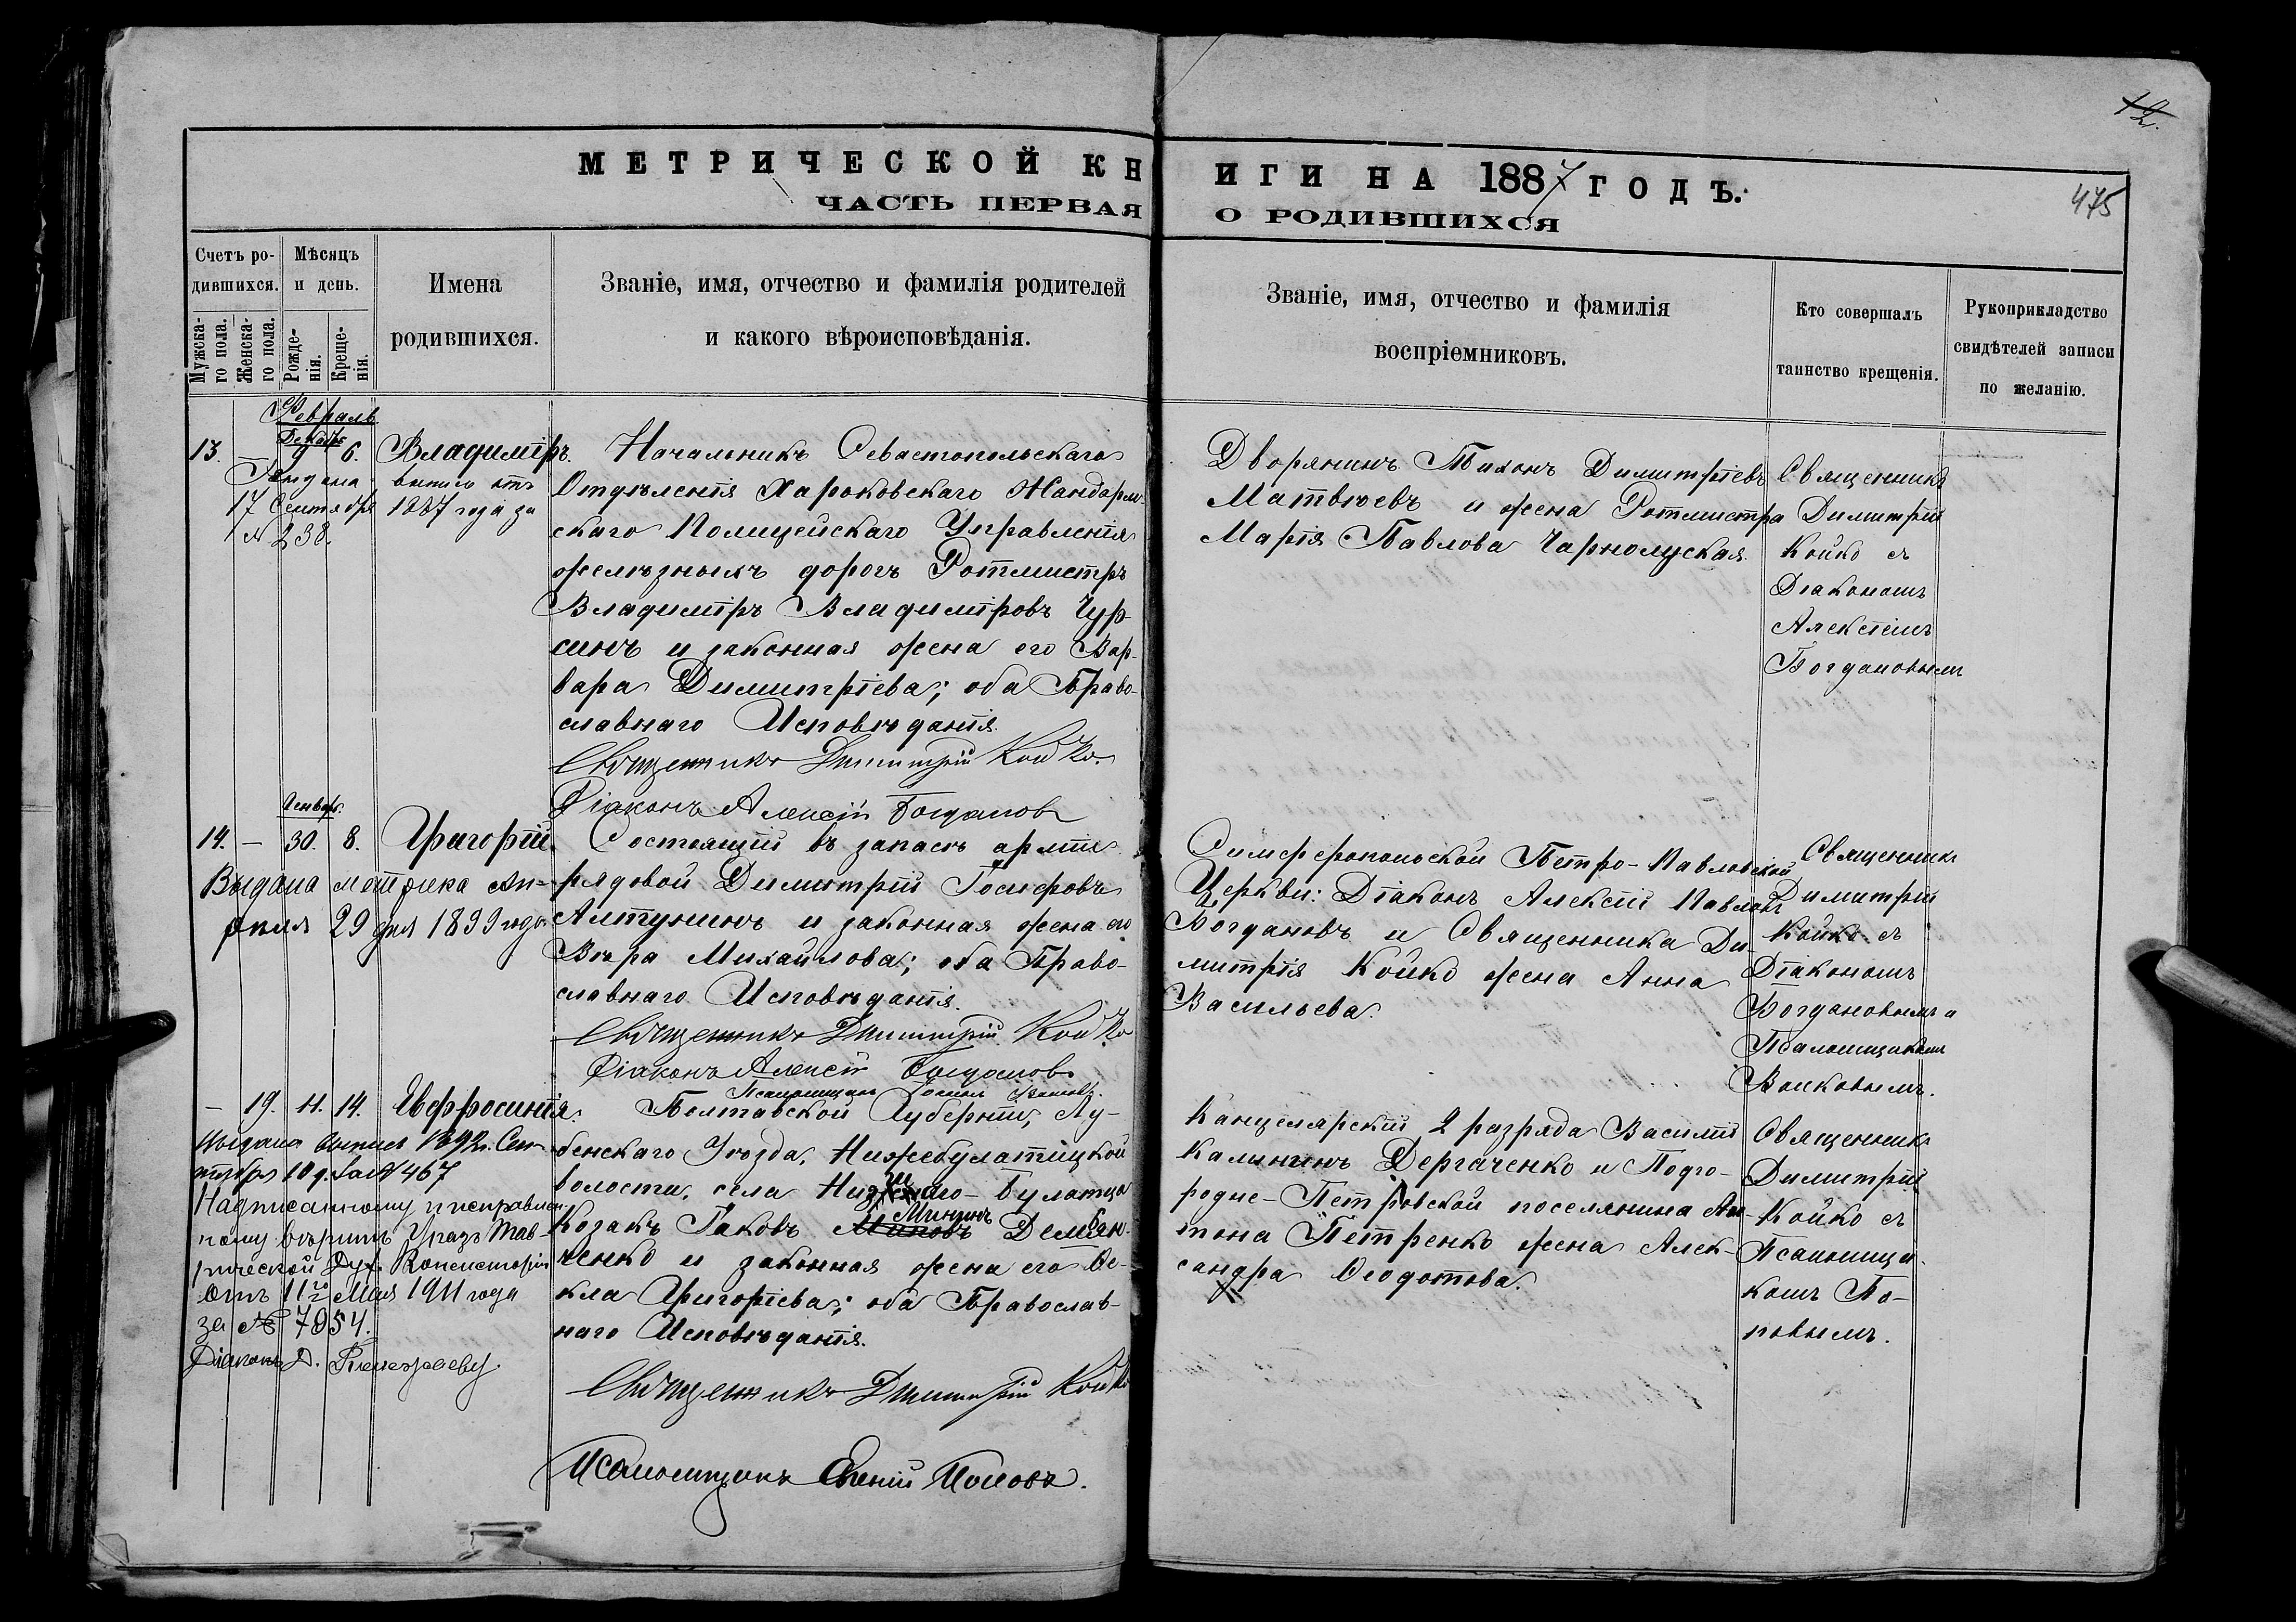 12.
475
МЕТРИЧЕСКОЙ КНИГИ НА 1887 ГОДЪ.
ЧАСТЬ ПЕРВАЯ О РОДИВШИХСЯ
Счетъ ро-
дившихся.
Мужска-
го пола.
Женска-
го пола.
Мѣсяцъ
и день.
Рожде-
нія.
Креще-
нія.
Имена
родившихся.
Званіе, имя, отчество и фамилія родителей
и какого вѣроисповѣданія.
Званіе, имя, отчество и фамилія
воспріемниковъ.
Кто совершалъ
таинство крещенія.
Рукоприкладство
свидѣтелей записи
по желанію.
Февраль
Декабрь
13. — 9 6. Владиміръ.
выпись отъ
17 Сентября 1887 года за
№ 238.
Начальникъ Севастопольскаго
Отдѣленія Харьковскаго Жандарм-
скаго Полицейскаго Управленія
желѣзныхъ дорогъ Ротмистръ
Владиміръ Владиміровъ Чур-
синъ и законная жена его Вар-
вара Димитріева; оба Право-
славнаго Исповѣданія.
Священникъ Димитрій Койко.
Діаконъ Алексій Богдановъ
Дворянинъ Тихонъ Димитріевъ
Матвѣевъ и жена Ротмистра
Марія Павлова Чарнолуская.
Священникъ
Димитрій
Койко съ
Діакономъ
Алексіемъ
Богдановымъ
Генварь.
14. — 30. 8. Григорій.
Выдана метрика Ап-
рѣля 29 дня 1899 года
Состоящій въ запасѣ арміи
рядовой Димитрій Іосифовъ
Алтунинъ и законная жена его
Вѣра Михайлова; оба Право-
славнаго Исповѣданія.
Священникъ Димитрій Койко
Діаконъ Алексій Богдановъ.
Псаломщикъ
Симферопольской Петро-Павловской
Церкви: Діаконъ Алексій Павловъ
Богдановъ и Священника Ди-
митрія Койко жена Анна
Васильева.
Священникъ
Димитрій
Койко съ
Діакономъ
Богдановымъ и
Псаломщикомъ
Волковымъ.
— 19. 11. 14. Евфросинія.
Выдана выпись 1892 г. Сен-
тября 10 д. за № 467
Надписанному и исправлен-
ному вѣрить Указъ Тав-
рической Дух. Консисторіи
отъ 11го Мая 1911 года
за № 7954.
Діаконъ
Полтавской Губерніи, Лу-
бенскаго Уѣзда, Нижебулатицкой
волости, села Нижняго-Булатца
Козакъ Іаковъ Миновъ Мининъ Демьян-
ченко и законная жена его Ѳе-
кла Григоріева; оба Православ-
наго Исповѣданія.
Священникъ Димитрій Койко
Псаломщикъ Евгеній Поповъ.
Канцелярскій 2 разряда Василій
Калининъ Дергаченко и Подго-
родне-Петровской поселянина Ан-
тона Петренко жена Алек-
сандра Ѳеодотова.
Священникъ
Димитрій
Койко съ
Псаломщи-
комъ По-
повымъ.